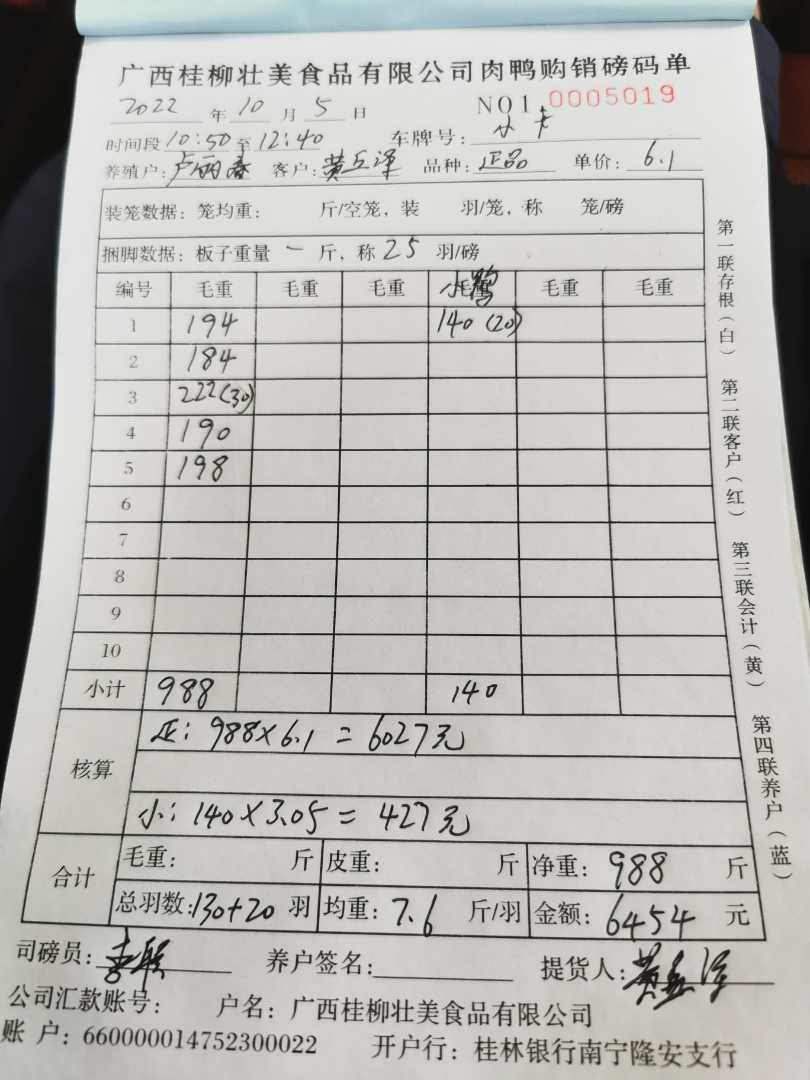 广西桂柳壮美食品有限公司肉鸭购销磅码单
2022 年 10 月 5 日 NO1. 0005019
时间段 10:50 至 12:40 车牌号: 小卡
养殖户: 卢丽春 客户: 黄丘泽 品种: 正品 单价: 6.1
装笼数据: 笼均重: 斤/空笼, 装 羽/笼, 称 笼/磅
捆脚数据: 板子重量 一 斤, 称 25 羽/磅
编号 毛重 毛重 毛重 小鸭 毛重 毛重
1 194 140(20)
2 184
3 222(30)
4 190
5 198
6
7
8
9
10
小计 988 140
核算
正: 988×6.1 = 6027元
小: 140×3.05 = 427元
合计
毛重: 斤 皮重: 斤 净重: 988 斤
总羽数: 130+20 羽 均重: 7.6 斤/羽 金额: 6454 元
司磅员: 养户签名: 提货人: 黄丘泽
公司汇款账号: 户名: 广西桂柳壮美食品有限公司
账 户: 660000014752300022 开户行: 桂林银行南宁隆安支行
第一联存根(白) 第二联客户(红) 第三联会计(黄) 第四联养户(蓝)